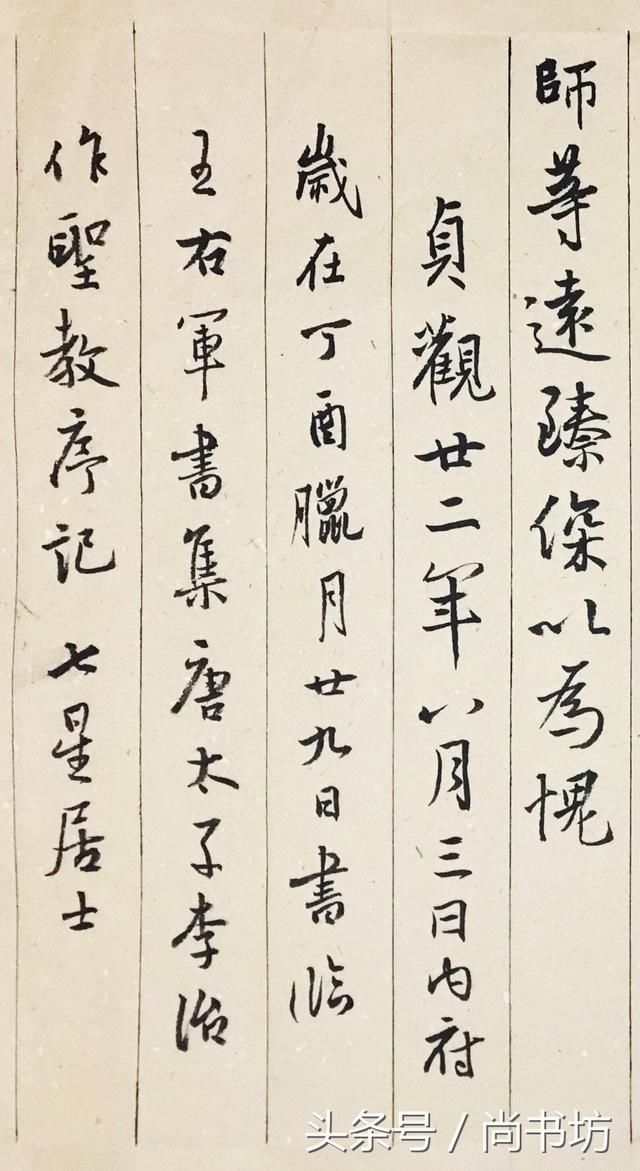 師等遠臻深以為愧
貞觀廿二年八月三日內府
歲在丁酉臘月廿九日書臨
王右軍書集唐太子李治
作聖教序記 七星居士
头条号 / 尚书坊